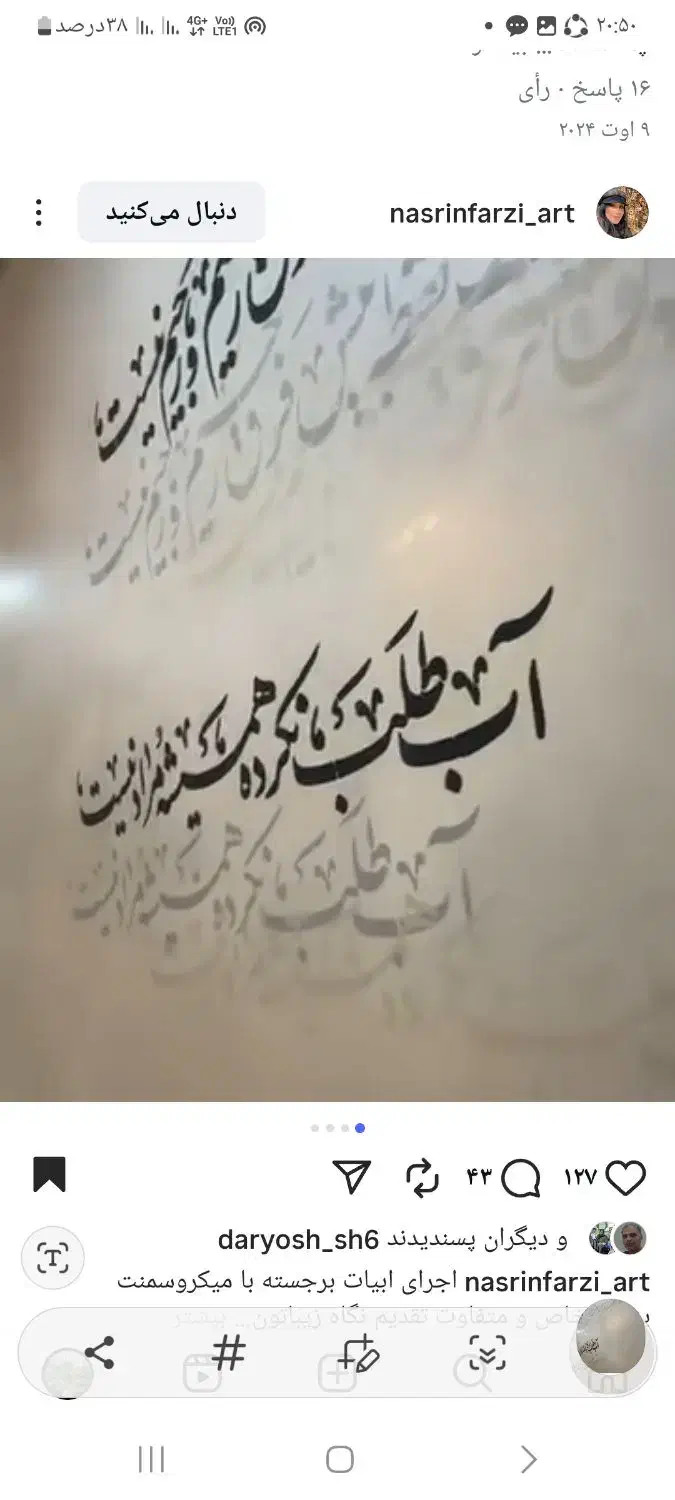 ۲۰:۵۰
4G+ Vo)) LTE1 ۳۸درصد
۱۶ پاسخ · رأی
۹ اوت ۲۰۲۴
nasrinfarzi_art
دنبال می‌کنید
نیست
آب طلب نکرده همیشه مراد نیست
۱۲۷ ۴۳
daryosh_sh6 و دیگران پسندیدند
nasrinfarzi_art اجرای ابیات برجسته با میکروسمنت
خاص و متفاوت تقدیم نگاه زیباتون... بیشتر